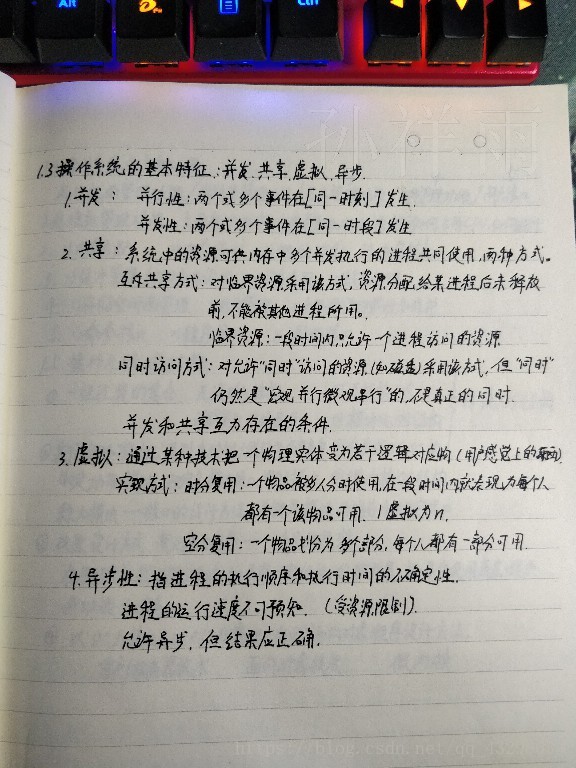 Alt
Fn
Ctrl
孙祥雨
1.3 操作系统的基本特征：并发、共享、虚拟、异步.
1.并发： 并行性：两个或多个事件在[同一时刻]发生.
并发性：两个或多个事件在[同一时段]发生
2.共享：系统中的资源可供内存中多个并发执行的进程共同使用,两种方式。
互斥共享方式：对临界资源采用该方式.资源分配给某进程后未释放
前,不能被其他进程所用。
临界资源：一段时间内只允许一个进程访问的资源
同时访问方式：对允许"同时"访问的资源(如磁盘)采用该方式,但"同时"
仍然是"宏观并行微观串行"的,不是真正的同时.
并发和共享互为存在的条件.
3.虚拟：通过某种技术把一个物理实体变为若干逻辑对应物(用户感觉上的
实现方式：时分复用：一个物品被多人分时使用,在一段时间内就表现为每个人
都有一个该物品可用. 1虚拟为n.
空分复用：一个物品划分为多个部分,每个人都有一部分可用.
4.异步性：指进程的执行顺序和执行时间的不确定性.
进程的运行速度不可预知. (受资源限制).
允许异步,但结果应正确.
https://blog.csdn.net/qq_